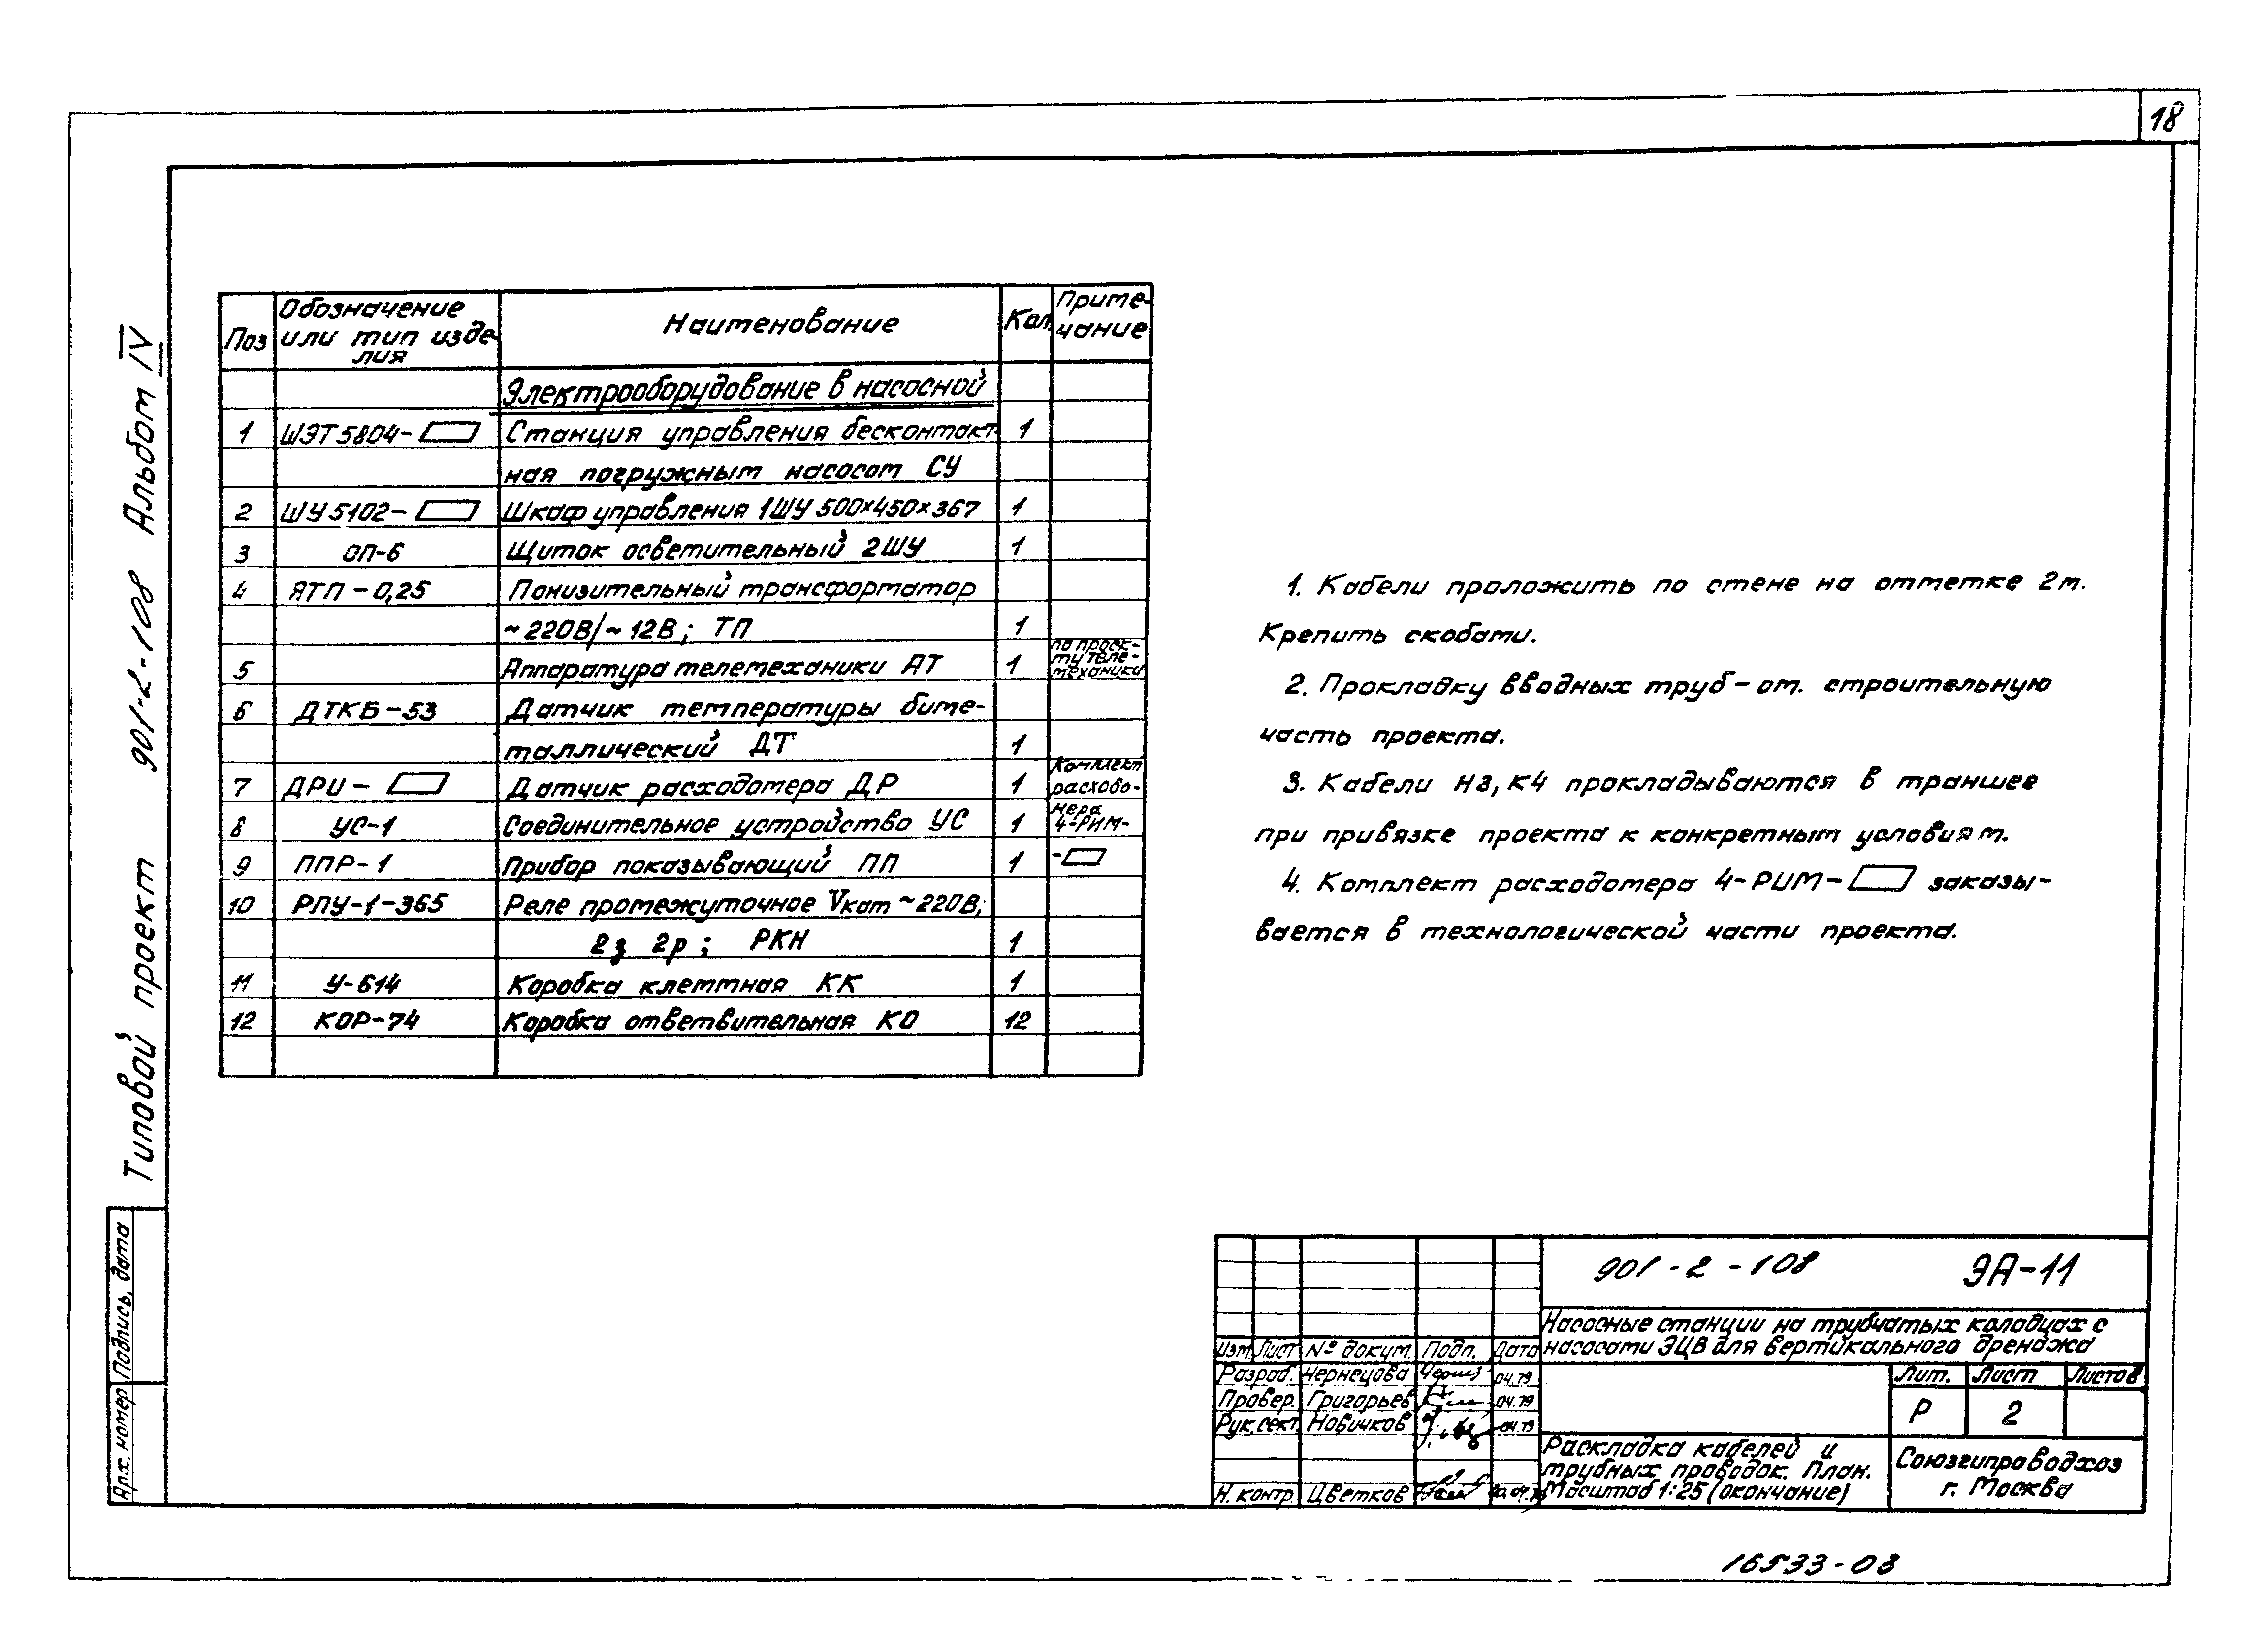 18
Типовой проект 901-2-108 Альбом IV
Поз
Обозначение
или тип изде-
лия
Наименование
Кол.
Приме-
чание
Электрооборудование в насосной
1 ШЭТ5804- Станция управления бесконтакт- 1
ная погружным насосом СУ
2 ШУ5102- Шкаф управления 1ШУ 500×450×367 1
3 ОП-6 Щиток осветительный 2ШУ 1
4 ЯТП-0,25 Понизительный трансформатор
~220В/~12В; ТП 1
5 Аппаратура телемеханики АТ 1
по проек-
ту теле-
механики
6 ДТКБ-53 Датчик температуры биме-
таллический ДТ 1
7 ДРИ- Датчик расходомера ДР 1
8 УС-1 Соединительное устройство УС 1
9 ППР-1 Прибор показывающий ПП 1
Комплект
расходо-
мера
4-РИМ-
-
10 РПУ-1-365 Реле промежуточное Vкат ~220В;
2з 2р; РКН 1
11 У-614 Коробка клеммная КК 1
12 КОР-74 Коробка ответвительная КО 12
1. Кабели проложить по стене на отметке 2м.
Крепить скобами.
2. Прокладку вводных труб-см. строительную
часть проекта.
3. Кабели Н3, К4 прокладываются в траншее
при привязке проекта к конкретным условиям.
4. Комплект расходомера 4-РИМ- заказы-
вается в технологической части проекта.
901-2-108 ЭА-11
Насосные станции на трубчатых колодцах с
насосами ЭЦВ для вертикального дренажа
Изм. Лист № докум. Подп. Дата
Разраб. Чернецова Черниз 04.79
Провер. Григорьев 04.79
Рук. сект. Новичков 04.79
Н. контр. Цветков
Лит. Лист Листов
Р 2
Раскладка кабелей и
трубных проводок. План.
Масштаб 1:25 (окончание)
Союзгипроводхоз
г. Москва
Подпись, дата
Арх. номер
16533-03